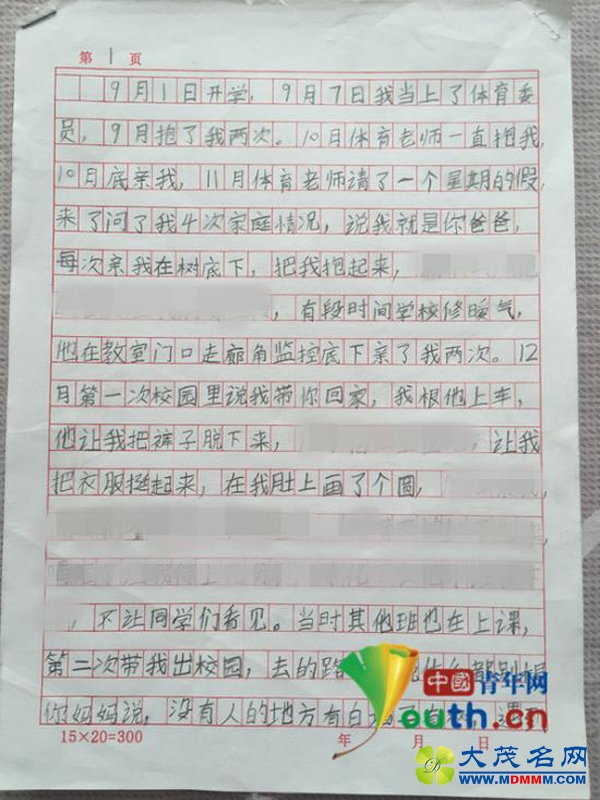 第 1 页
9月1日开学，9月7日我当上了体育委
员，9月抱了我两次。10月体育老师一直抱我，
10月底亲我，11月体育老师请了一个星期的假，
来了问了我4次家庭情况，说我就是你爸爸，
每次亲我在树底下，把我抱起来，
，有段时间学校修暖气，
他在教室门口走廊角监控底下亲了我两次。12
月第一次校园里说我带你回家，我根他上车，
他让我把裤子脱下来，，让我
把衣服挺起来，在我肚上画了个圆，
，不让同学们看见。当时其他班也在上课，
第二次带我出校园，去的路 都别跟
你妈妈说，没有人的地方有白
15×20=300 年 月 日
中國青年网
outh.cn
大茂名网
www.MDMMM.com